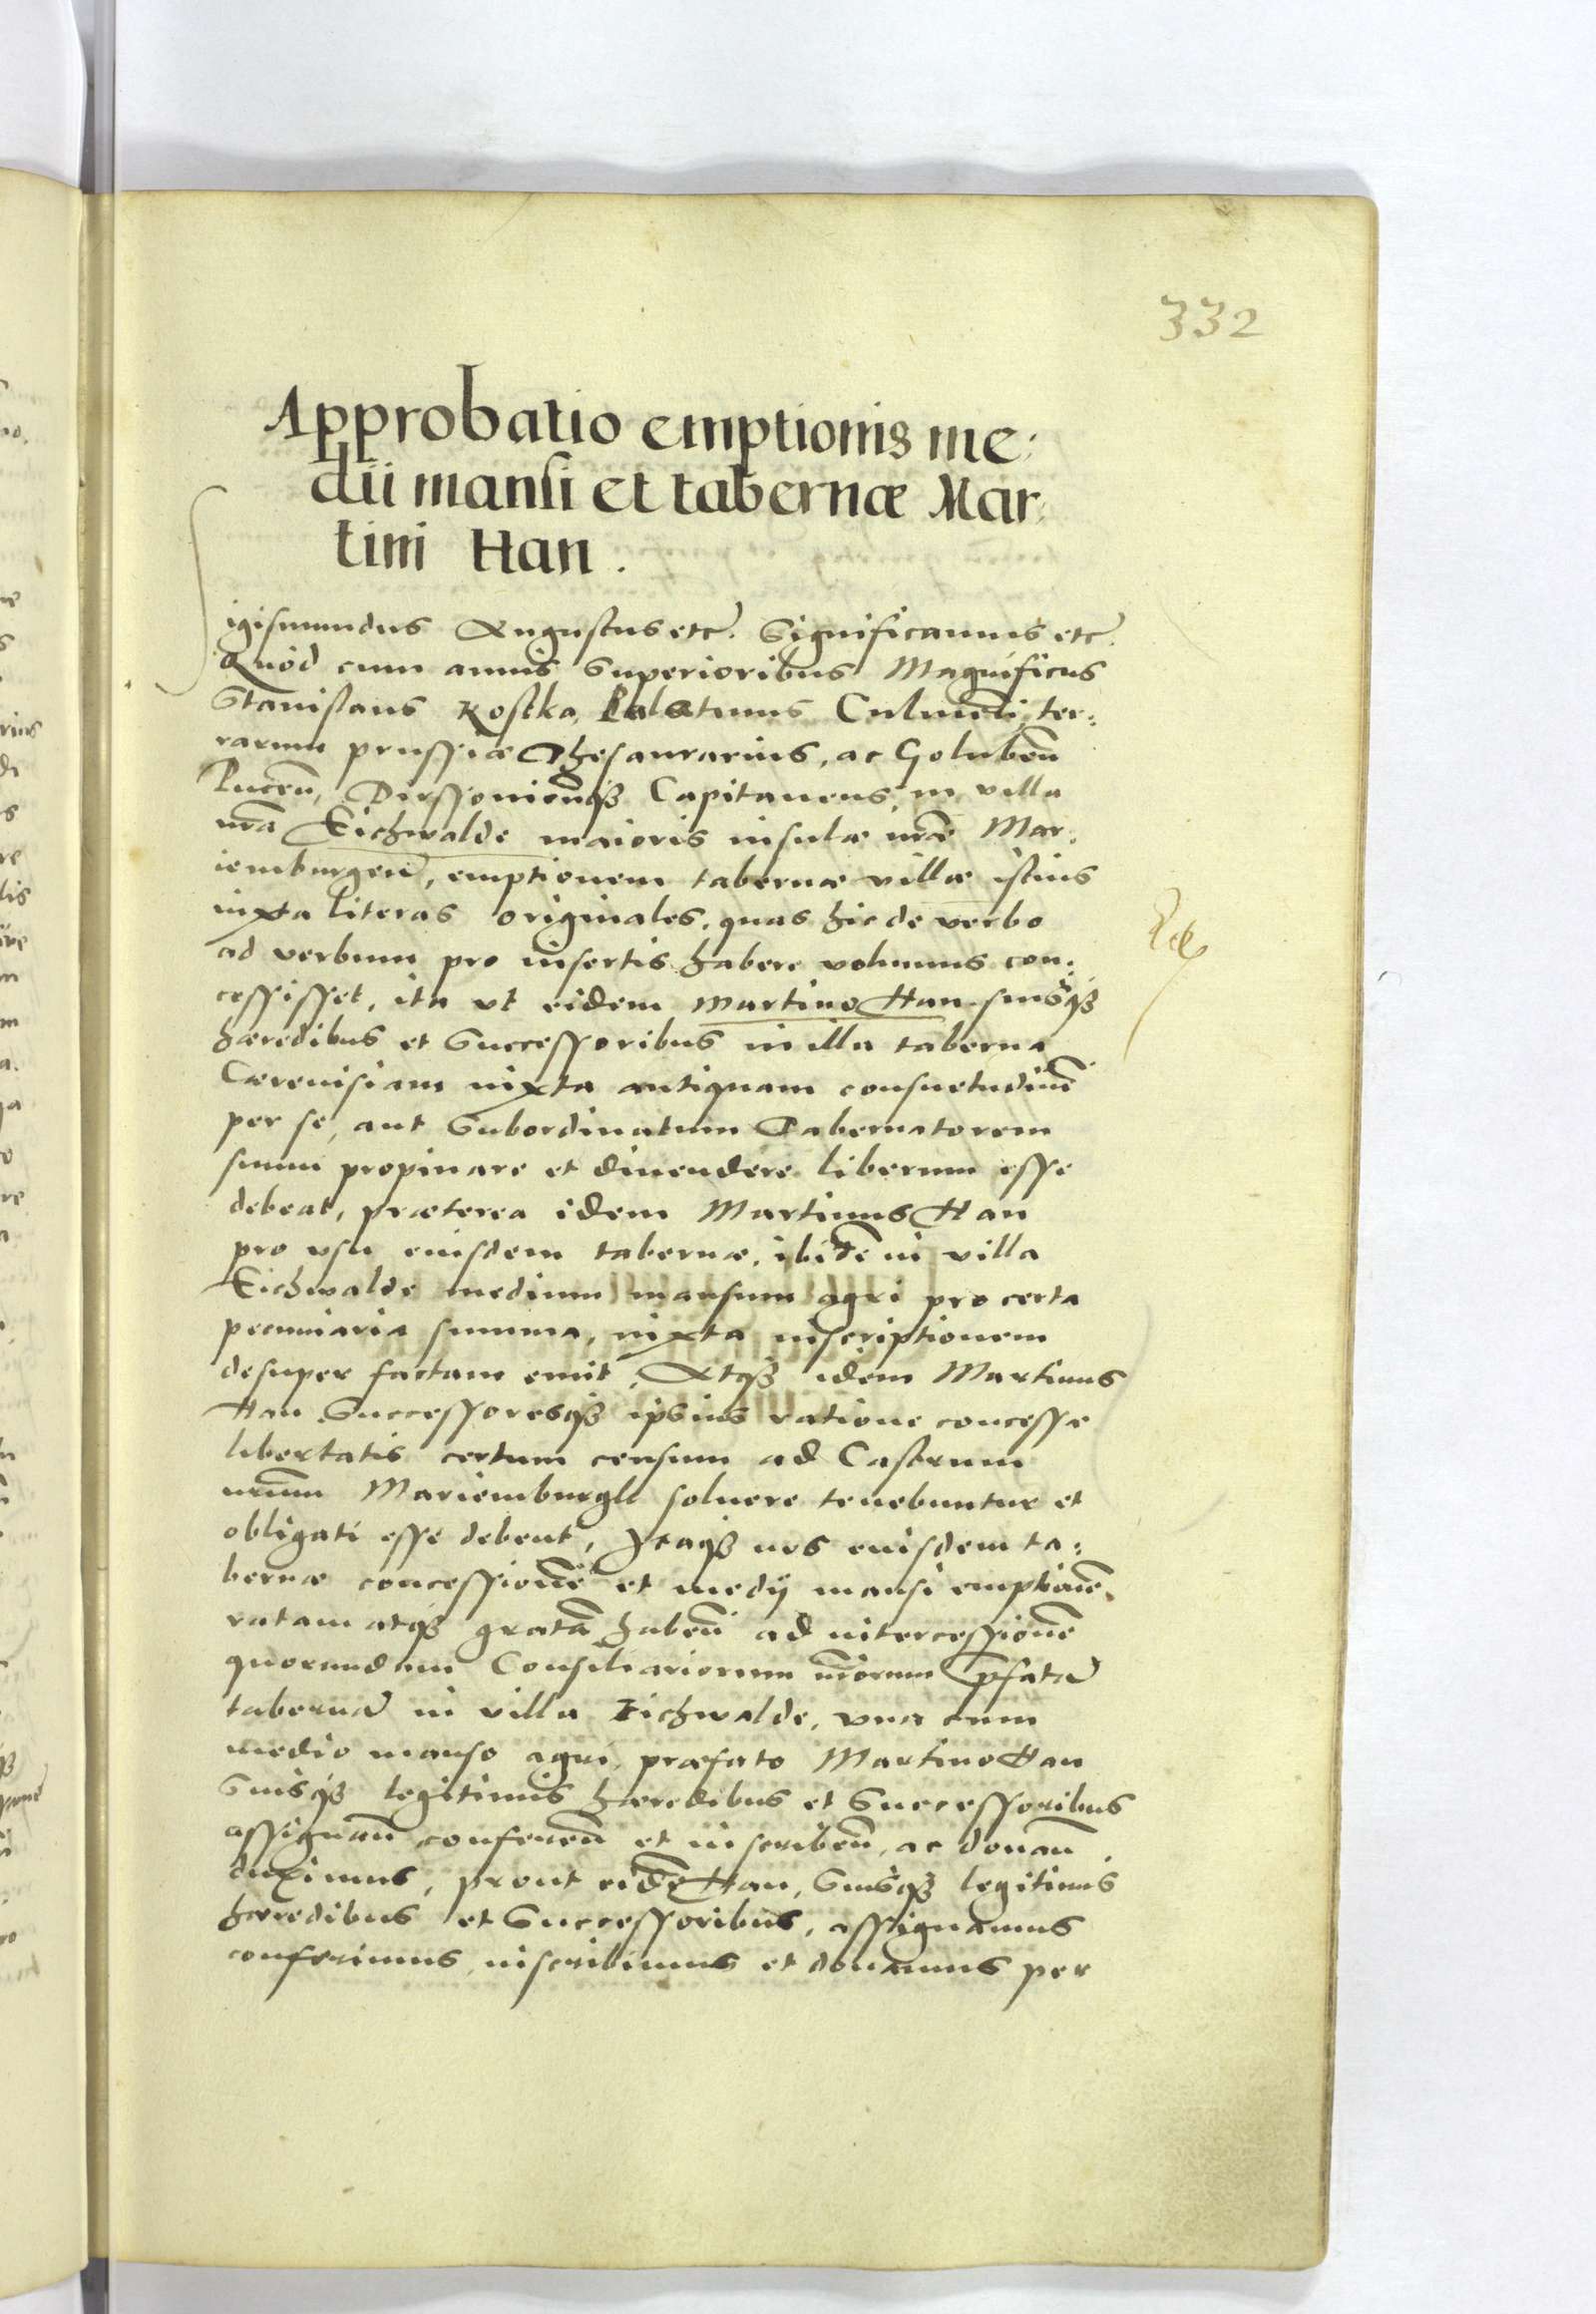 332
Approbatio emptionis me:
dii mansi et tabernæ Mar:
tini Han.
Sigismundus Augustus etc. Significamus etc.
Quòd cum annis superioribus Magnificus
Stanislaus Kostka, Palatinus Culmen̄, ter:
rarum prussiæ Thesaurarius, ac Goluben̄
Pucen̄, Dirssonien̄q₃ Capitaneus, in villa
nr̄a Eichwalde maioris insulæ nr̄æ Mar:
iemburgen̄, emptionem tabernæ villæ istius
iuxta literas originales, quas hic de verbo
ad verbum pro insertis habere volumus con:
cessisset, ita vt eidem Martino Han suisq₃
hæredibus et Successoribus in illa taberna
Cæreuisiam iuxta antiquam consuetudinē
per se, aut Subordinatum Tabernatorem
suum propinare et diuendere liberum esse
debeat, præterea idem Martinus Han
pro vsu eiusdem tabernæ, ibidē in villa
Eichwalde medium mansum agri pro certa
pecuniaria summa, iuxta inscriptionem
desuper factam emit, Atq₃ idem Martinus
Han Successoresq₃ ipsius ratione concessæ
libertatis certum censum ad Castrum
nr̄um Mariemburgh soluere tenebuntur et
obligati esse debent, Itaq₃ nos eiusdem ta:
bernæ concessionē et medij mansi emptionē
ratam atq₃ gratā haben̄ ad intercessionē
quorundam Consiliariorum nr̄orum p̄fatā
tabernā in villa Eichwalde, vna cum
medio manso agri, præfato Martino Han
Suisq₃ legitimis hæredibus et Successoribus
assignan̄ conferen̄ et inscriben̄, ac donan̄
duximus, prout eidē Han, Suisq₃ legitimis
hæredibus et Successoribus, assignamus
conferimus, inscribimus et donamus per